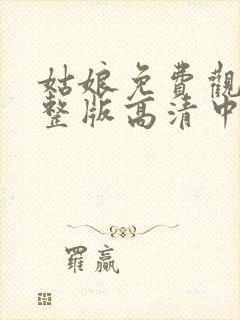 姑娘免費觀
整版高清中
羅贏